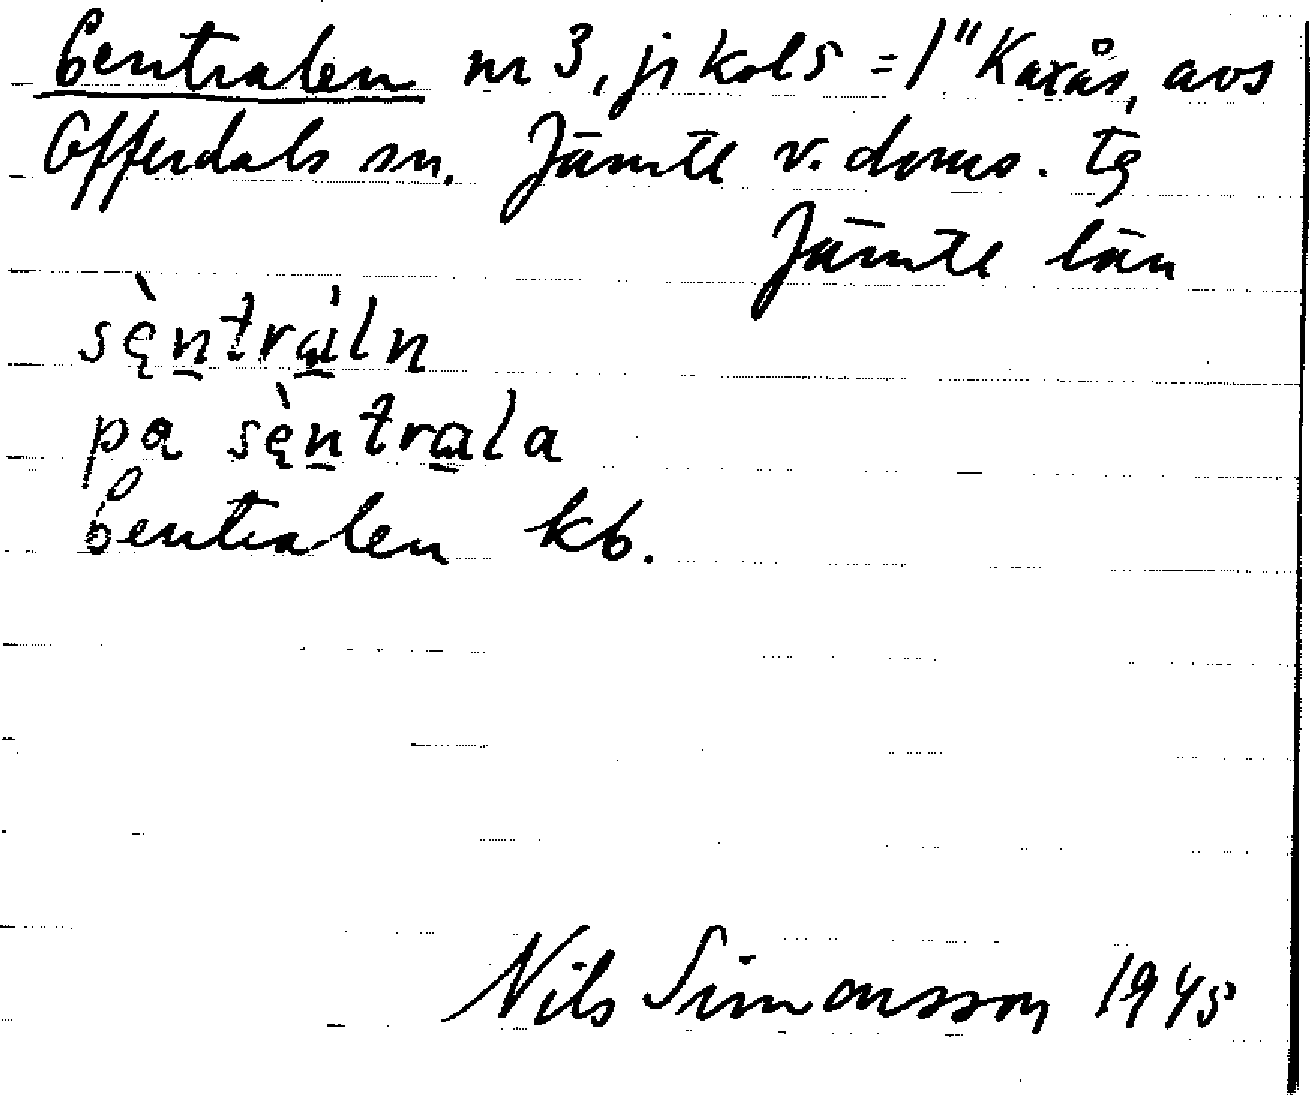 Centralen nr 3, ji kol 5 = 1" Kaxås, avs
Offerdals sn. Jämtl v. doms. tg
Jämtl län
sè̜ntráln
pa sè̜ntrala
Centralen kb.
Nils Simonsson 1945